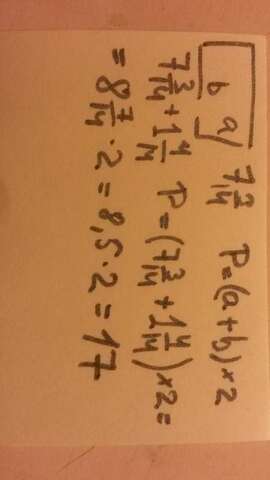 b a 7 3/14 P=(a+b)×2
7 3/14 + 1 4/14 P=(7 3/14 + 1 4/14)×2=
= 8 7/14 · 2 = 8,5 · 2 = 17